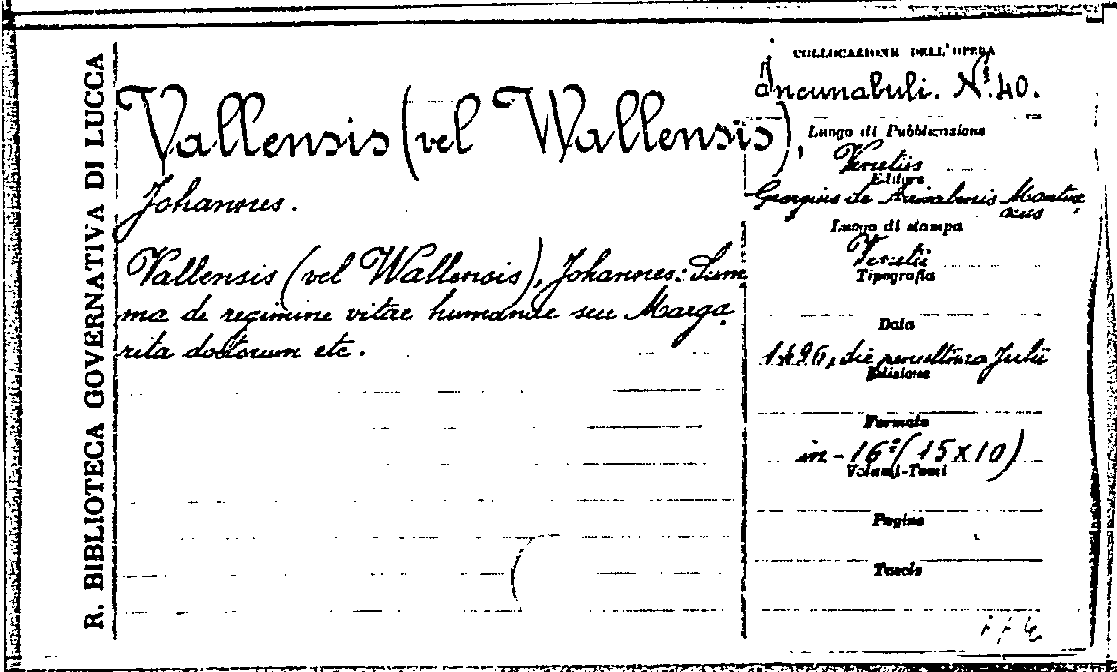 R. BIBLIOTECA GOVERNATIVA DI LUCCA
Vallensis (vel Wallensis),
Johannes.
Vallensis (vel Wallensis), Johannes: Sum
ma de regimine vitae humanae seu Marga
rita doctorum etc.
COLLOCAZIONE DELL'OPERA
Incunabuli. N.º 40.
Luogo di Pubblicazione
Venetiis
Editore
Georgius de Arrivabenis Mantu
anus
Luogo di stampa
Venetiis
Tipografia
Data
1496, die penultima Julii
Edizione
Formato
in-16º (15x10)
Volumi-Tomi
Pagine
Tavole